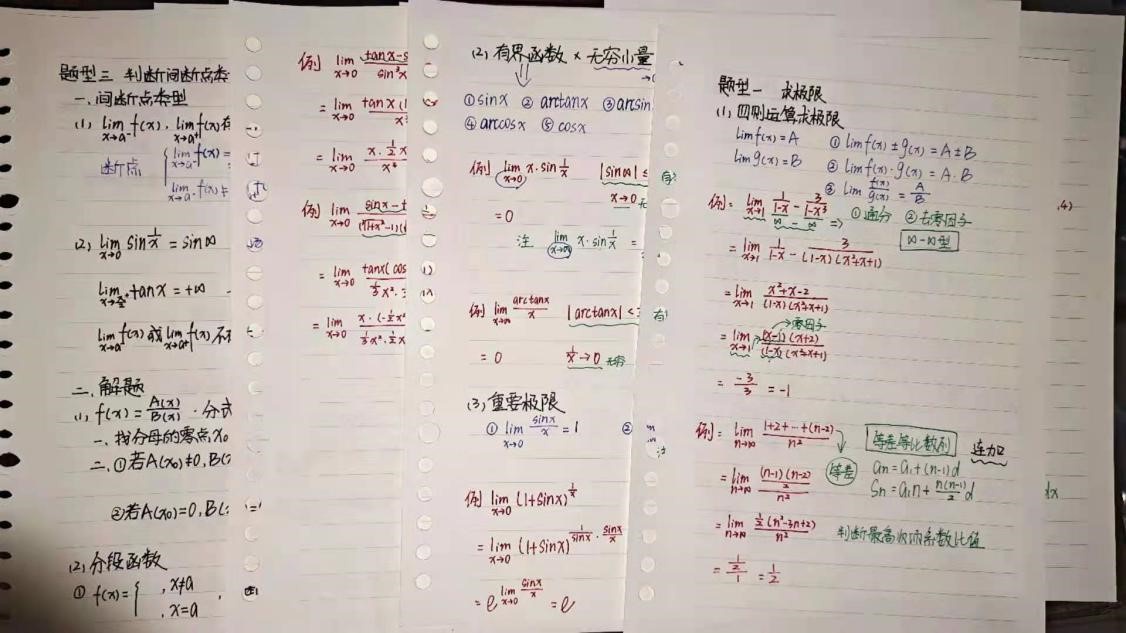 题型三 判断间断点类
一、间断点类型
(1) lim x→a⁻ f(x), lim x→a⁺ f(x)存
断点 { lim x→a⁻ f(x) =
lim x→a⁻ f(x) ≠
(2) lim x→0 sin 1/x = sin ∞
tan x = +∞
lim x→a⁻ f(x) 或 lim x→a⁺ f(x) 不
二、解题
(1) f(x) = A(x)/B(x) · 分式
一、找分母的零点 x₀
二、①若A(x₀)≠0, B(
②若A(x₀)=0, B(
(2) 分段函数
① f(x) = { , x≠a
, x=a
例 lim x→0 tanx-s / sin³x
= lim x→0 tanx (1
= lim x→0 x · ½x
例 lim x→0 sinx-t / (∛1+x²-1)(
= lim x→0 tanx(cos / ⅓x² ·
= lim x→0 x · (-½x² / ⅓x² · ½x
(2) 有界函数 × 无穷小量
①sinx ② arctanx ③arcsin
④ arccosx ⑤ cosx
例 lim x→0 x·sin 1/x |sinn| ≤
x→0 无
= 0
注 lim x→∞ x·sin 1/x =
例 lim x→∞ arctanx / x |arctanx| <
= 0 1/x → 0 无穷
(3) 重要极限
① lim x→0 sinx / x = 1 ②
例 lim x→0 (1+sinx)^(1/x)
= lim x→0 (1+sinx)^(1/sinx · sinx/x)
= e^(lim x→0 sinx/x) = e
题型一 求极限
(1) 四则运算求极限
lim f(x) = A ① lim f(x) ± g(x) = A ± B
lim g(x) = B ② lim f(x) · g(x) = A · B
③ lim f(x)/g(x) = A/B
例: lim x→1 1/(1-x) - 3/(1-x³) ①通分 ②去零因子
∞ - ∞ ⇒ ∞-∞型
= lim x→1 1/(1-x) - 3/((1-x)(x²+x+1))
= lim x→1 (x²+x-2)/((1-x)(x²+x+1))
→零因子
= lim x→1 (x-1)(x+2)/((1-x)(x²+x+1))
= -3/3 = -1
例: lim n→∞ (1+2+…+(n-2))/n² 等差等比数列 连加
= lim n→∞ ((n-1)(n-2)/2)/n² 等差 an = a₁+(n-1)d
Sn = a₁n + n(n-1)/2 d
= lim n→∞ ½(n²-3n+2)/n² 判断最高次项系数比值
= ½/1 = 1/2
dx